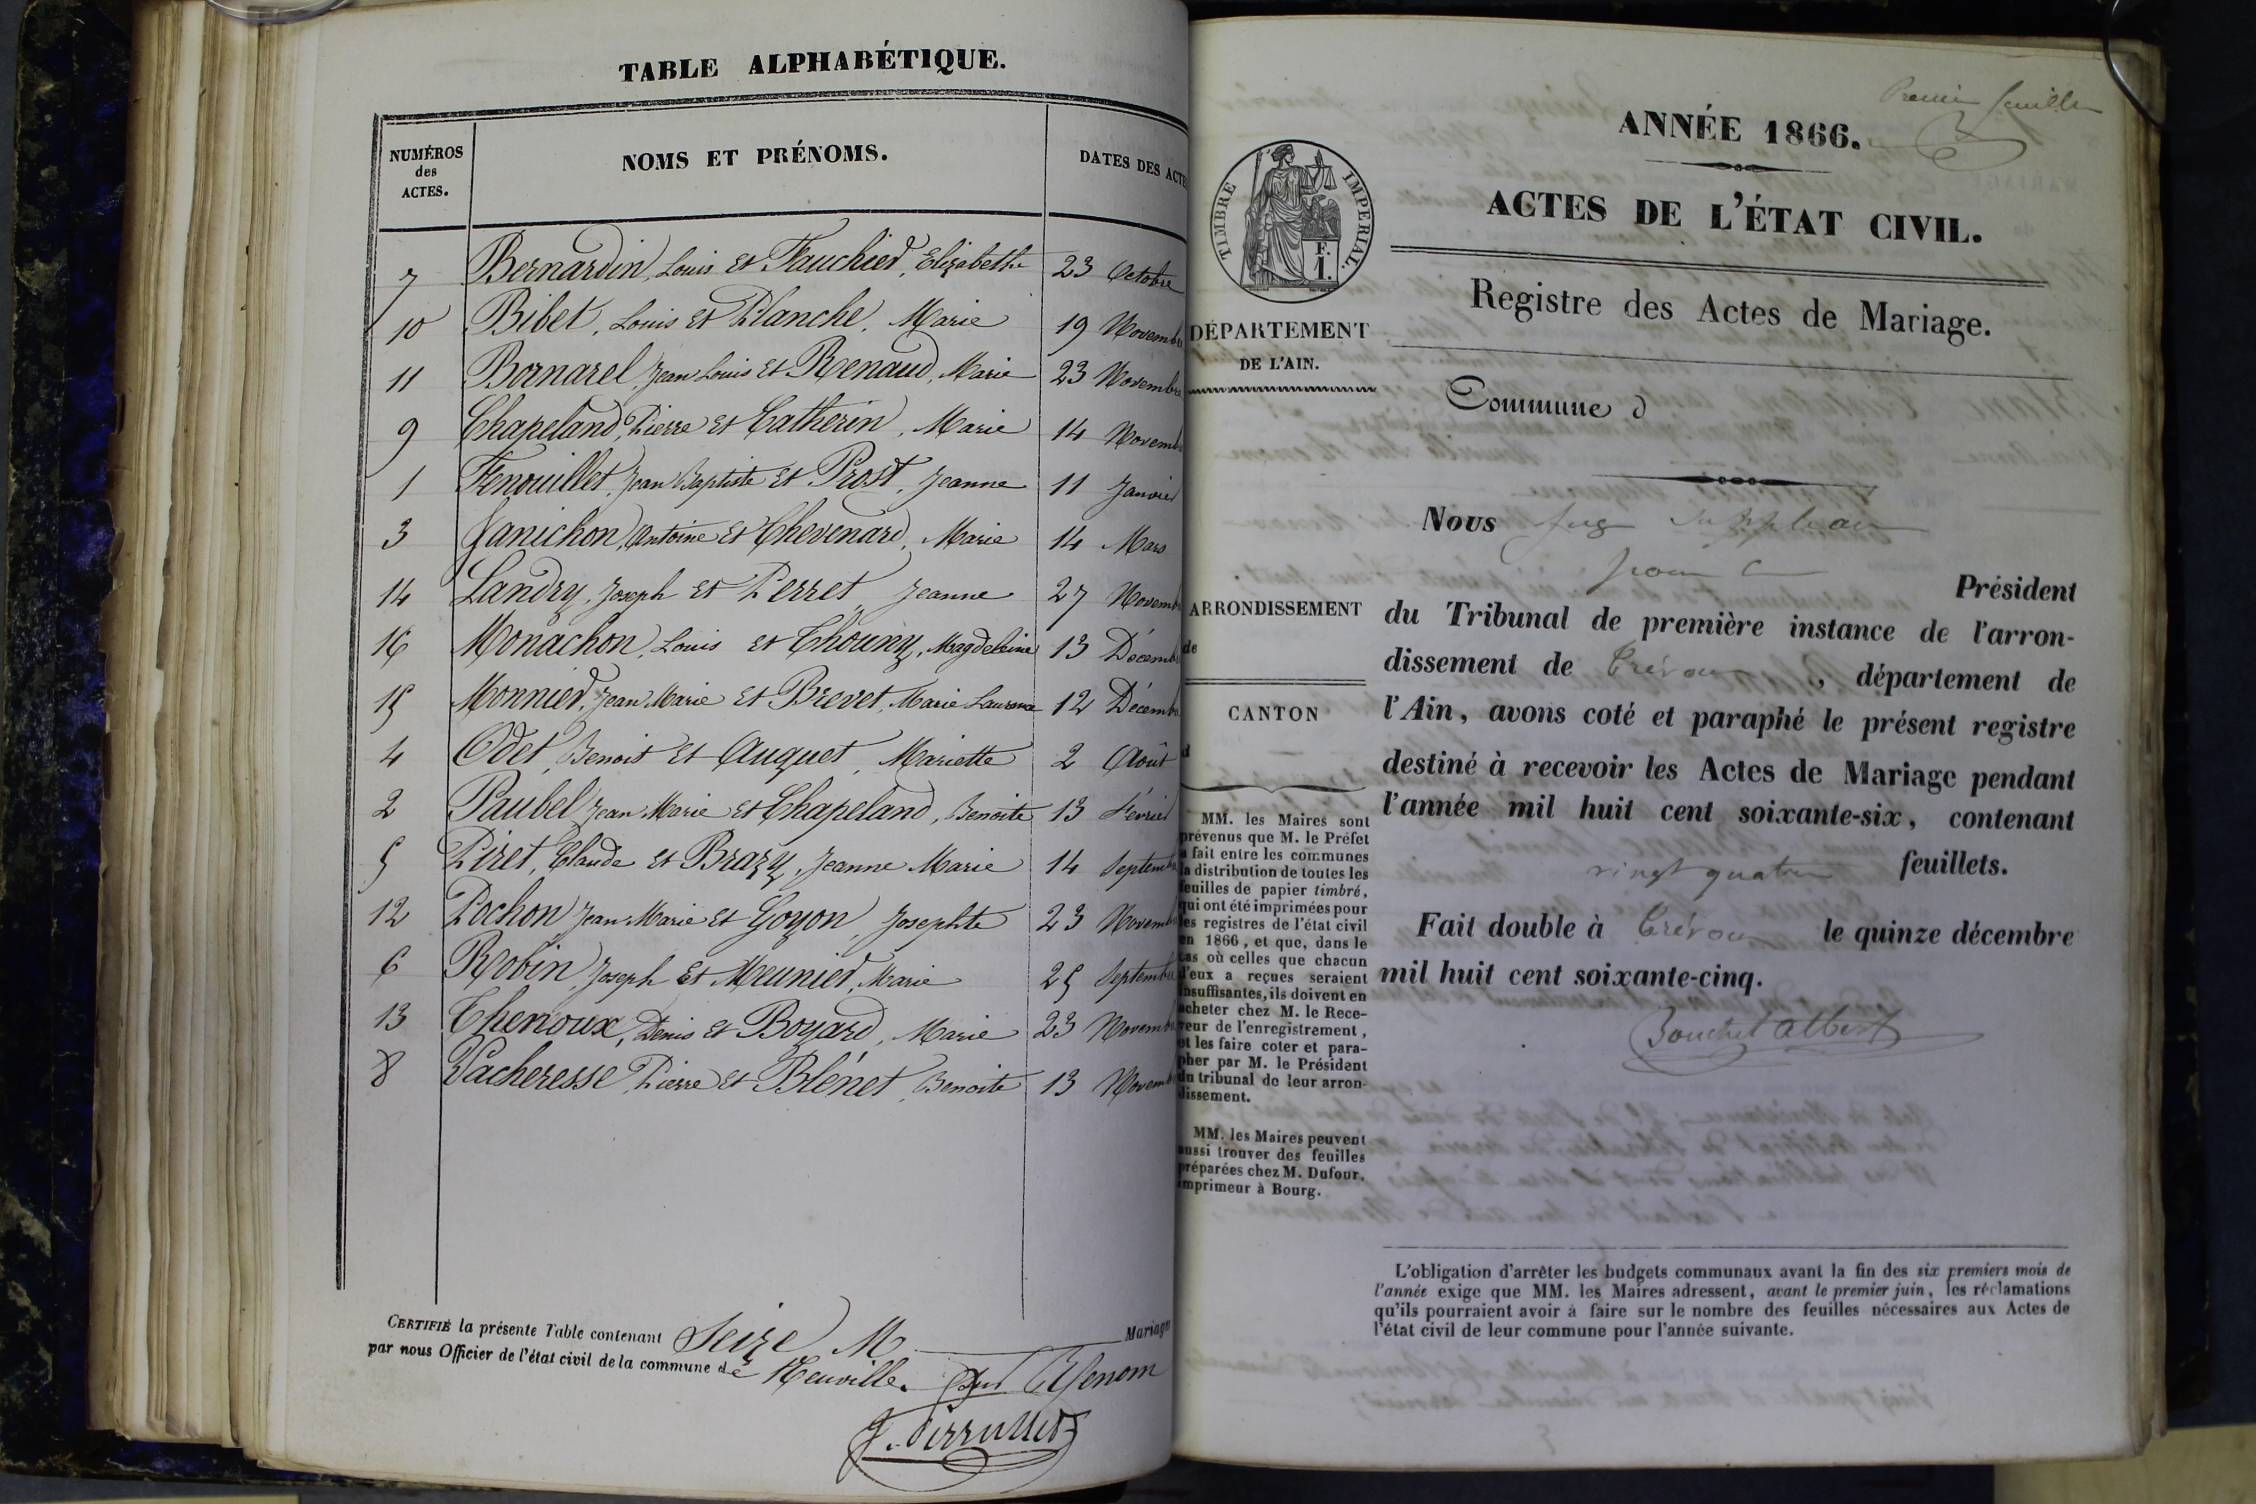 TABLE ALPHABÉTIQUE.
NUMÉROS des ACTES.
NOMS ET PRÉNOMS.
DATES DES ACTE
7 Bernardin, Louis et Fauchier, Elizabeth 23 Octobre
10 Bibet, Louis et Planche, Marie 19 Novembre
11 Bornarel, Jean Louis et Renaud, Marie 23 Novembre
9 Chapeland, Pierre et Catherin, Marie 14 Novemb
1 Fenouillet, Jean Baptiste et Prost, Jeanne 11 Janvier
3 Janichon, Antoine et Chevenard, Marie 14 Mars
14 Landry, Joseph et Perret, Jeanne 27 Novemb
16 Monachon, Louis et Chouny, Magdeleine 13 Décemb
15 Monnier, Jean Marie et Brevet, Marie Laurence 12 Décemb
4 Odet, Benoit et Auquet, Mariette 2 Août
2 Paubel, Jean Marie et Chapeland, Benoite 13 Février
5 Piret, Claude et Brazy, Jeanne Marie 14 Septemb
12 Pochon, Jean Marie et Goyon, Josephte 23 Novemb
6 Robin, Joseph et Meunier, Marie 25 Septembre
13 Thenoux, Denis et Boyard, Marie 23 Novemb
8 Vacheresse, Pierre et Blénet, Benoite 13 Novemb
CERTIFIÉ la présente Table contenant Seize M Mariages
par nous Officier de l'état civil de la commune de Neuville.
Premier feuillet
ANNÉE 1866.
ACTES DE L'ÉTAT CIVIL.
Registre des Actes de Mariage.
TIMBRE IMPERIAL.
F.
1.
DÉPARTEMENT
DE L'AIN.
Commune d
Nous Juge suppléant
pour le Président
du Tribunal de première instance de l'arron-
dissement de Trévoux, département de
l'Ain, avons coté et paraphé le présent registre
destiné à recevoir les Actes de Mariage pendant
l'année mil huit cent soixante-six, contenant
vingt quatre feuillets.
Fait double à Trévoux le quinze décembre
mil huit cent soixante-cinq.
Bouchet Albert
ARRONDISSEMENT
de
CANTON
d
MM. les Maires sont
prévenus que M. le Préfet
a fait entre les communes
la distribution de toutes les
feuilles de papier timbré,
qui ont été imprimées pour
les registres de l'état civil
en 1866, et que, dans le
cas où celles que chacun
d'eux a reçues seraient
insuffisantes, ils doivent en
acheter chez M. le Rece-
veur de l'enregistrement,
et les faire coter et para-
pher par M. le Président
du tribunal de leur arron-
dissement.
MM. les Maires peuvent
aussi trouver des feuilles
préparées chez M. Dufour,
imprimeur à Bourg.
L'obligation d'arrêter les budgets communaux avant la fin des six premiers mois de
l'année exige que MM. les Maires adressent, avant le premier juin, les réclamations
qu'ils pourraient avoir à faire sur le nombre des feuilles nécessaires aux Actes de
l'état civil de leur commune pour l'année suivante.